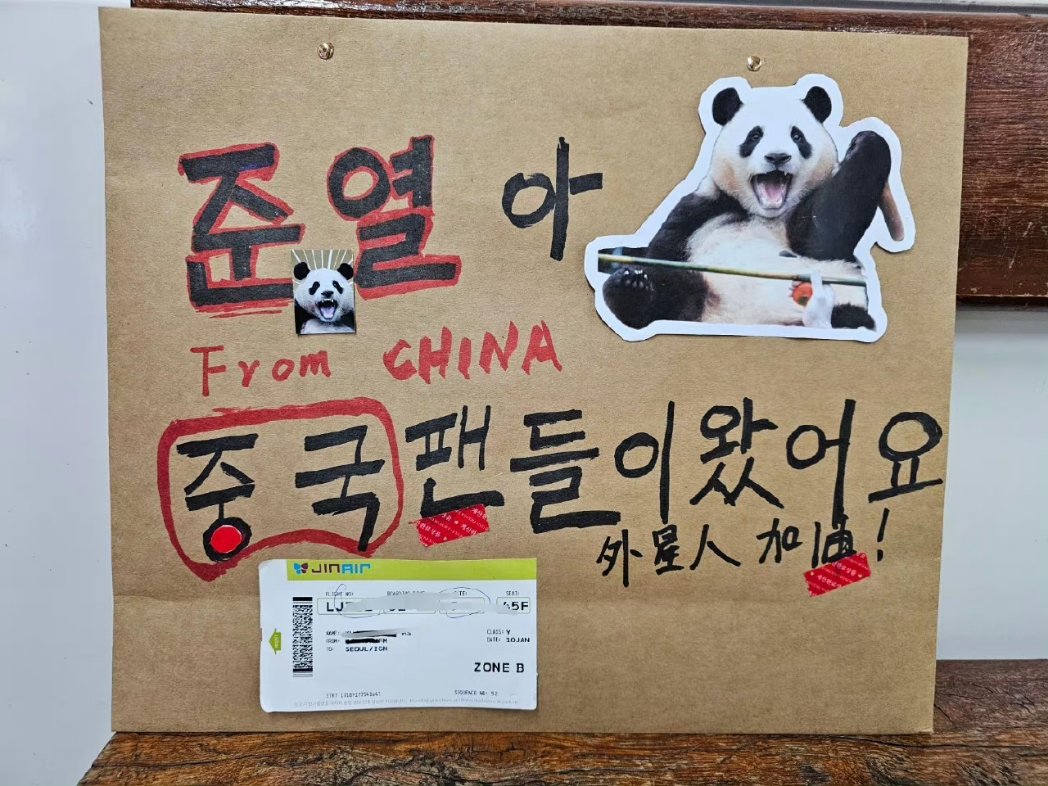 준열 아
From CHINA
중국팬들이왔어요
外星人 加油!
JINAIR
FLIGHT NO:
SEAT:
45F
NAME:
FROM:
TO: SEOUL/ICN
CLASS: Y
DATE: 10JAN
ZONE B
SEQUENCE NO: 52